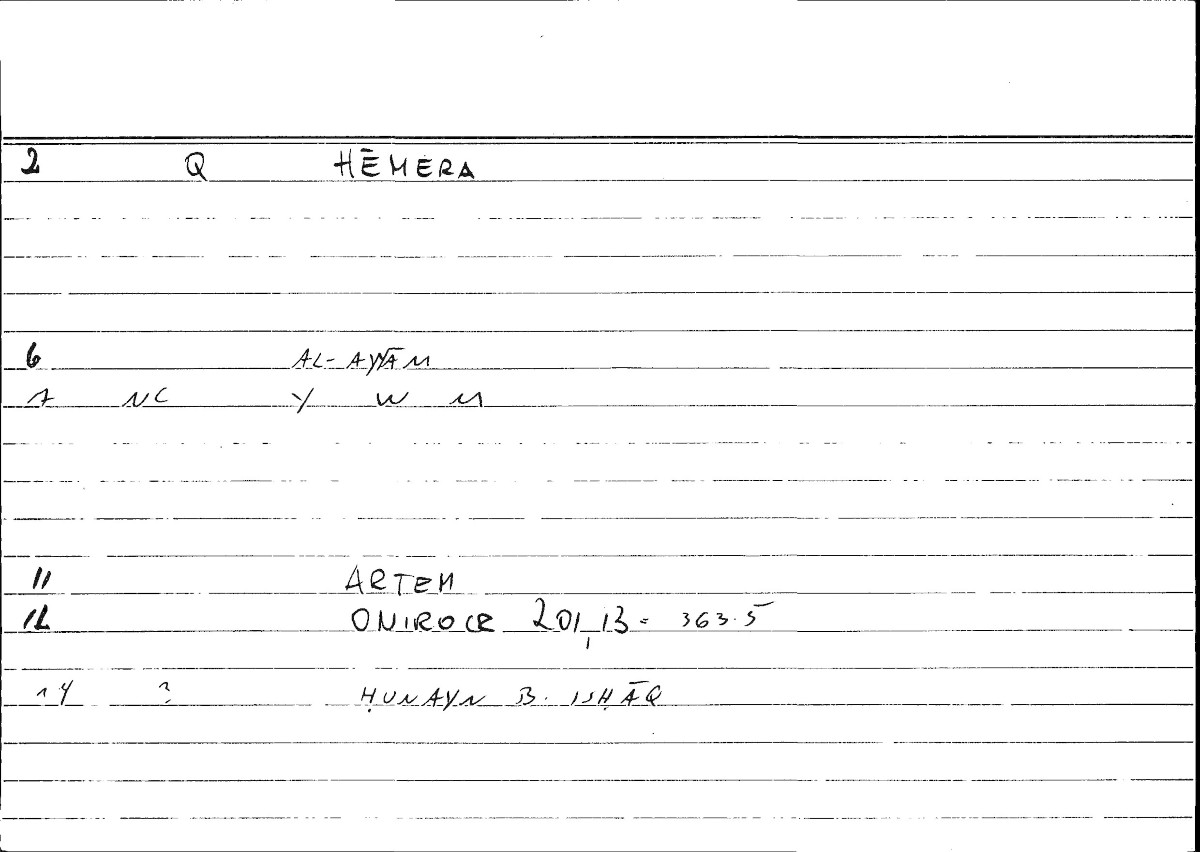 2 Q HĒMERA
6 AL-AYYĀM
7 NC Y W M
11 ARTEM
12 ONIROCR 201,13 = 363.5
14 ? ḤUNAYN B. ISḤĀQ